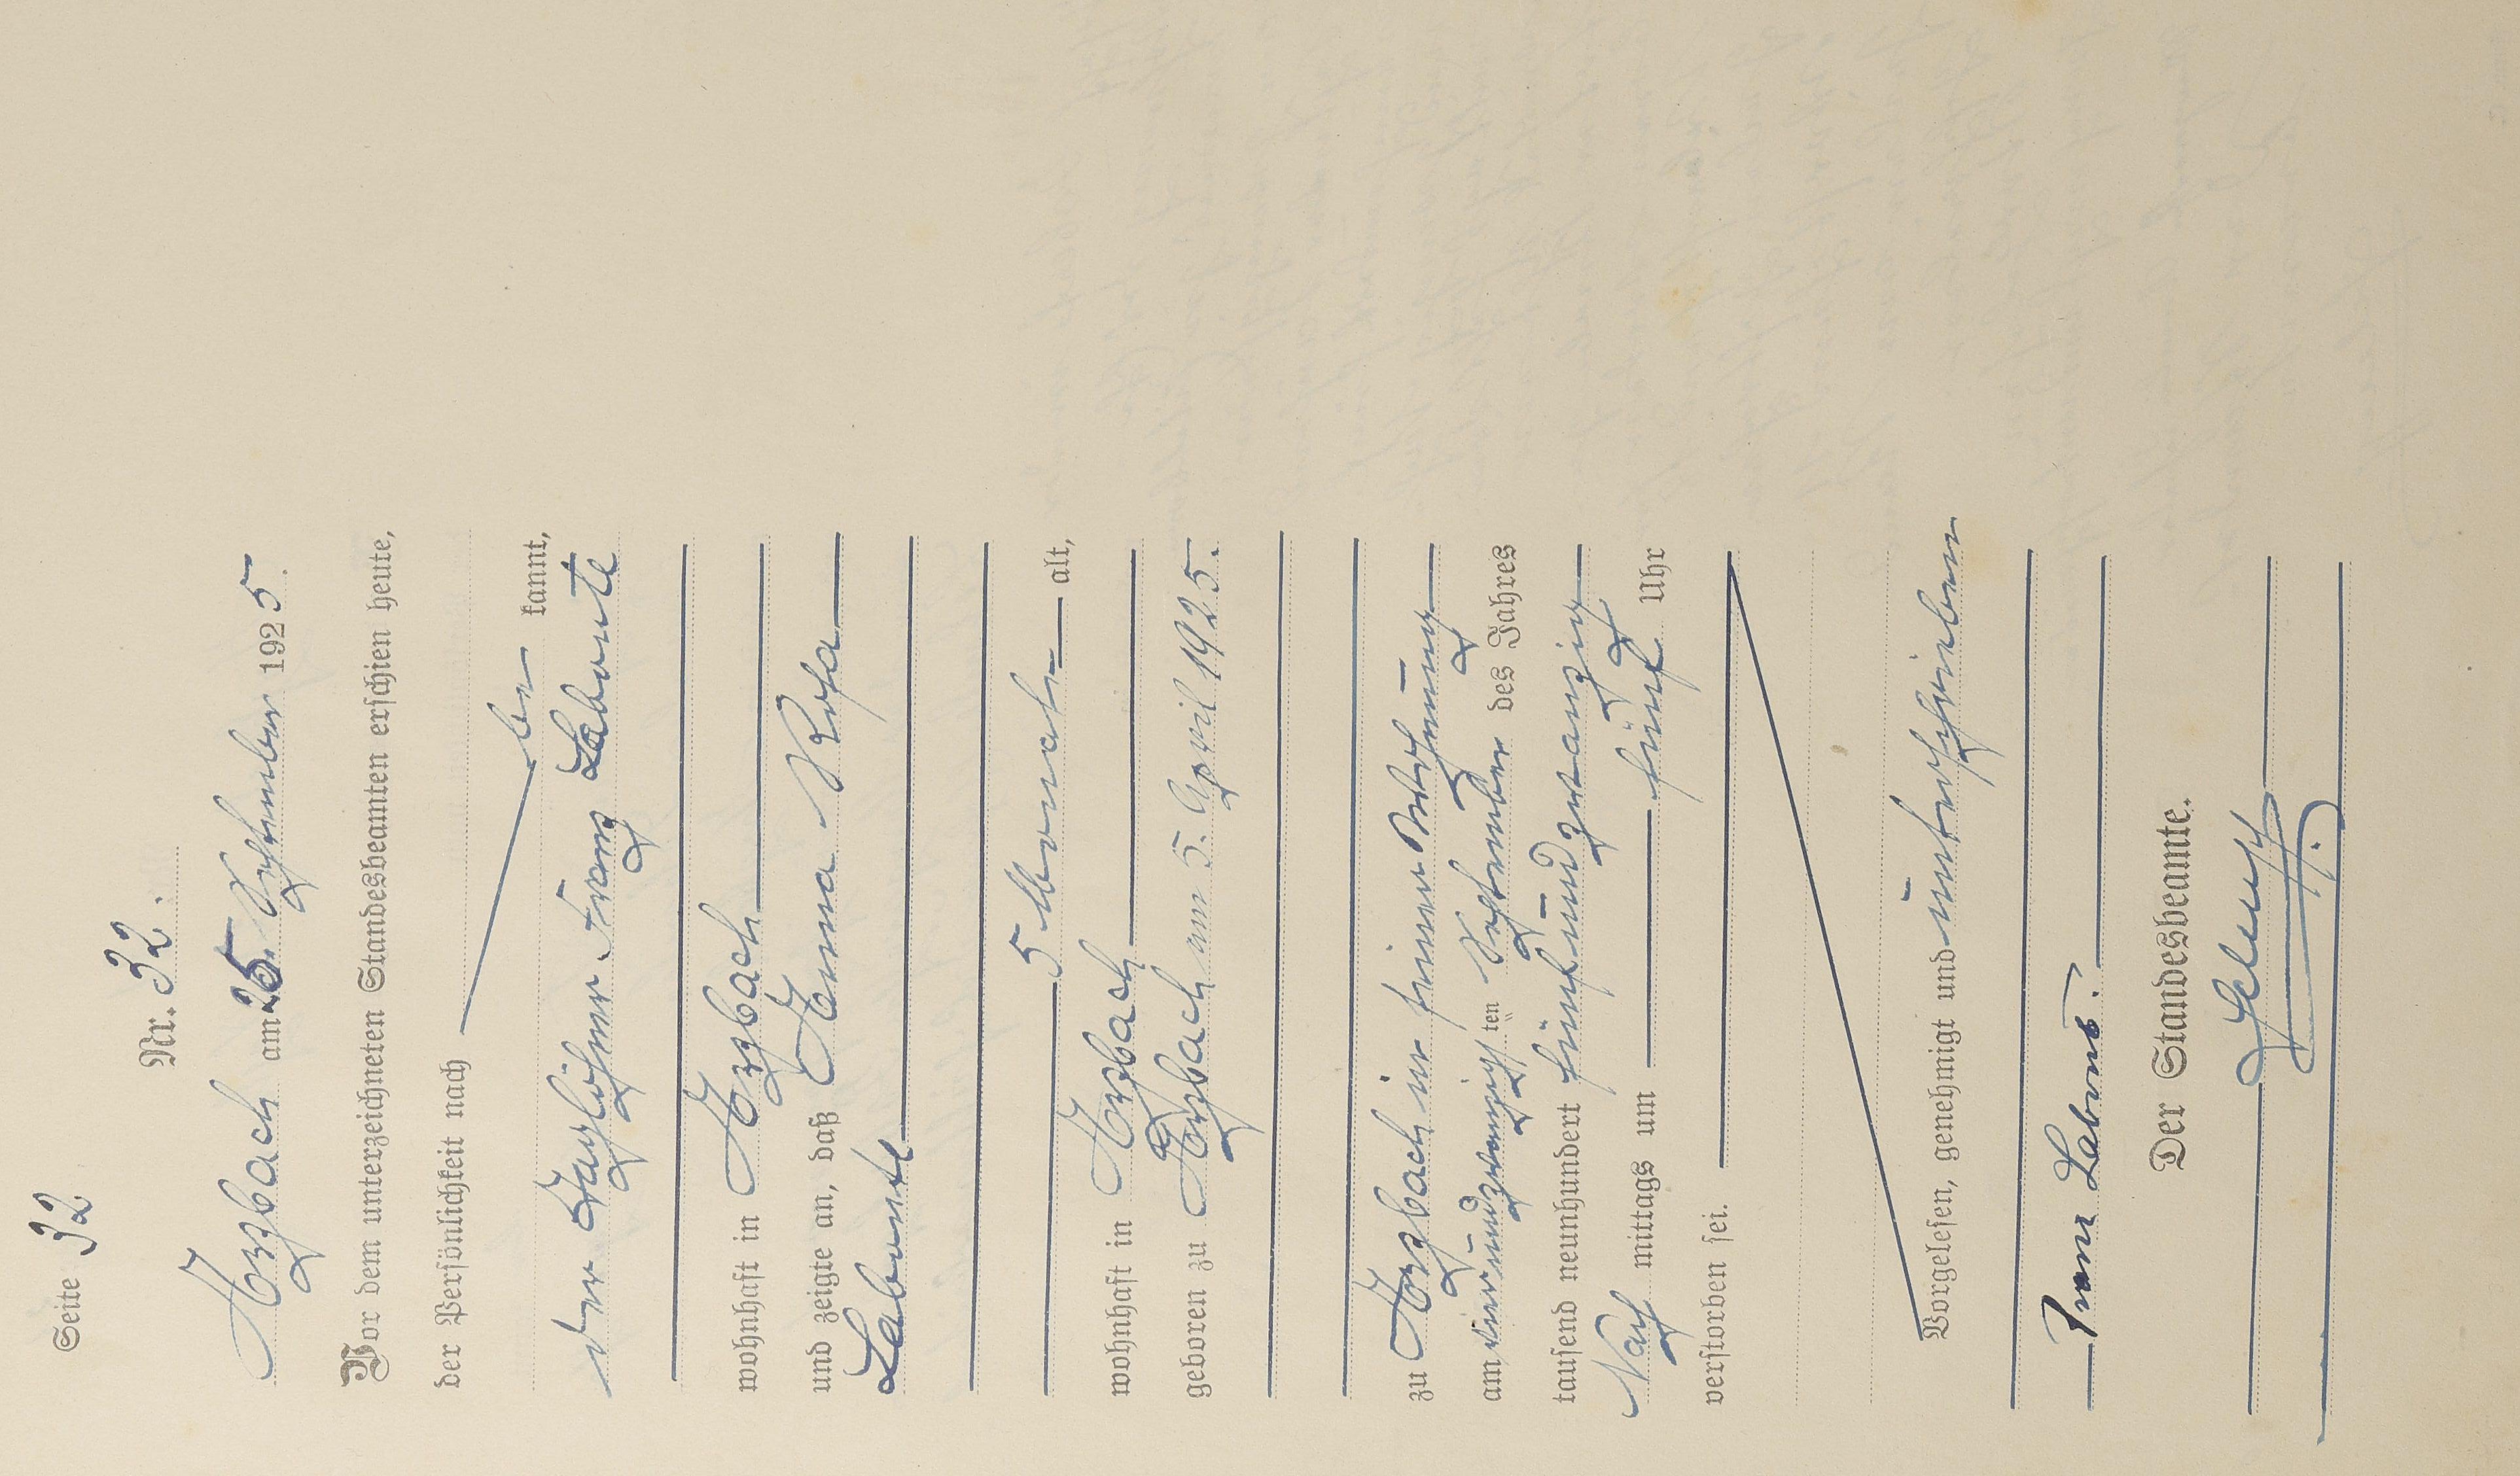 Seite 32
Nr. 32.
am 25. September 1925.
Vor dem unterzeichneten Standesbeamten erschien heute,
der Persönlichkeit nach
be kannt,
der Taglöhner Franz Labonte
wohnhaft in
und zeigte an, daß Rosa
Labonte
5 Monate alt,
wohnhaft in
geboren zu am 5. April 1925.
zu in seiner Wohnung
am vierundzwanzig ten September des Jahres
tausend neunhundert fünfundzwanzig
Nach mittags um fünf Uhr
verstorben sei.
Vorgelesen, genehmigt und unterschrieben
Franz
Der Standesbeamte.